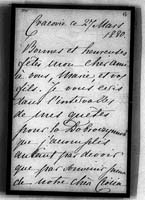 Cracovie ce 27 Mars
1880.
Bonnes et heureuses
fêtes mon cher ami
à vous, Marie, et vos
fils. Je vous écris
dans l'intervalle
de mes quêtes
pour la
que j'accomplis
autant par devoir
que par souvenir
de notre chère